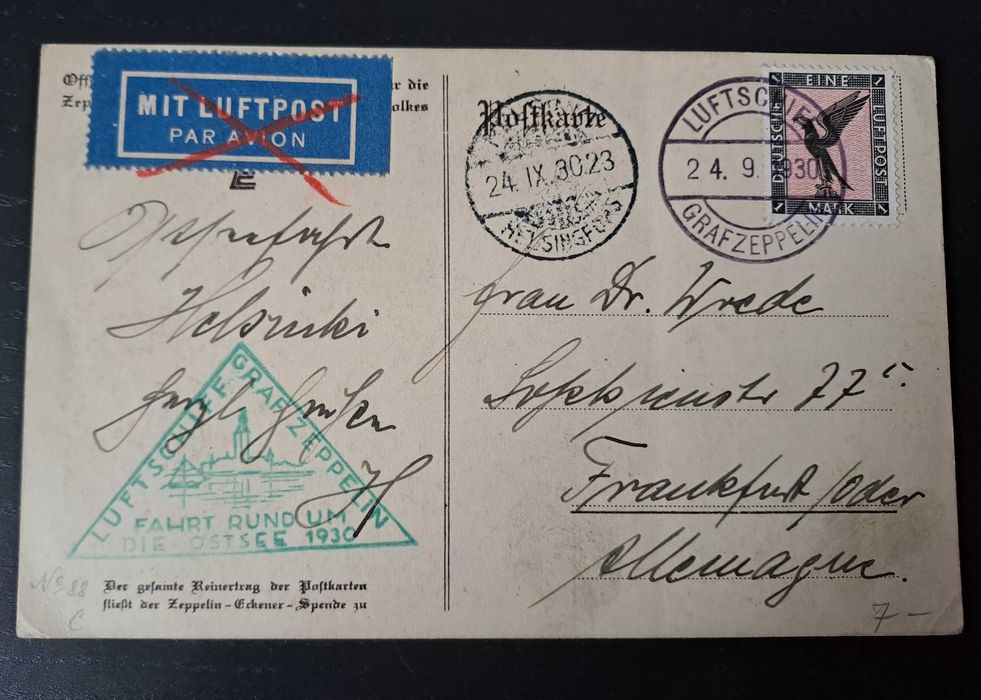 Off r die
Zep olkes
MIT LUFTPOST
PAR AVION
Postkarte
24. IX. 30.23
HELSINGFORS
LUFTSCHIFF
24.9.1930
GRAFZEPPELIN
1 EINE 1
DEUTSCHE
LUFTPOST
1 MARK 1
Ostseefahrt
Helsinki
Grüßen
H
LUFTSCHIFF GRAF ZEPPELIN
FAHRT RUND UM
DIE OSTSEE 1930
Frau Dr. Wrede
77
Frankfurt/Oder
Allemagne.
Der gesamte Reinertrag der Postkarten
fließt der Zeppelin-Eckener-Spende zu
No 88
C
7 -